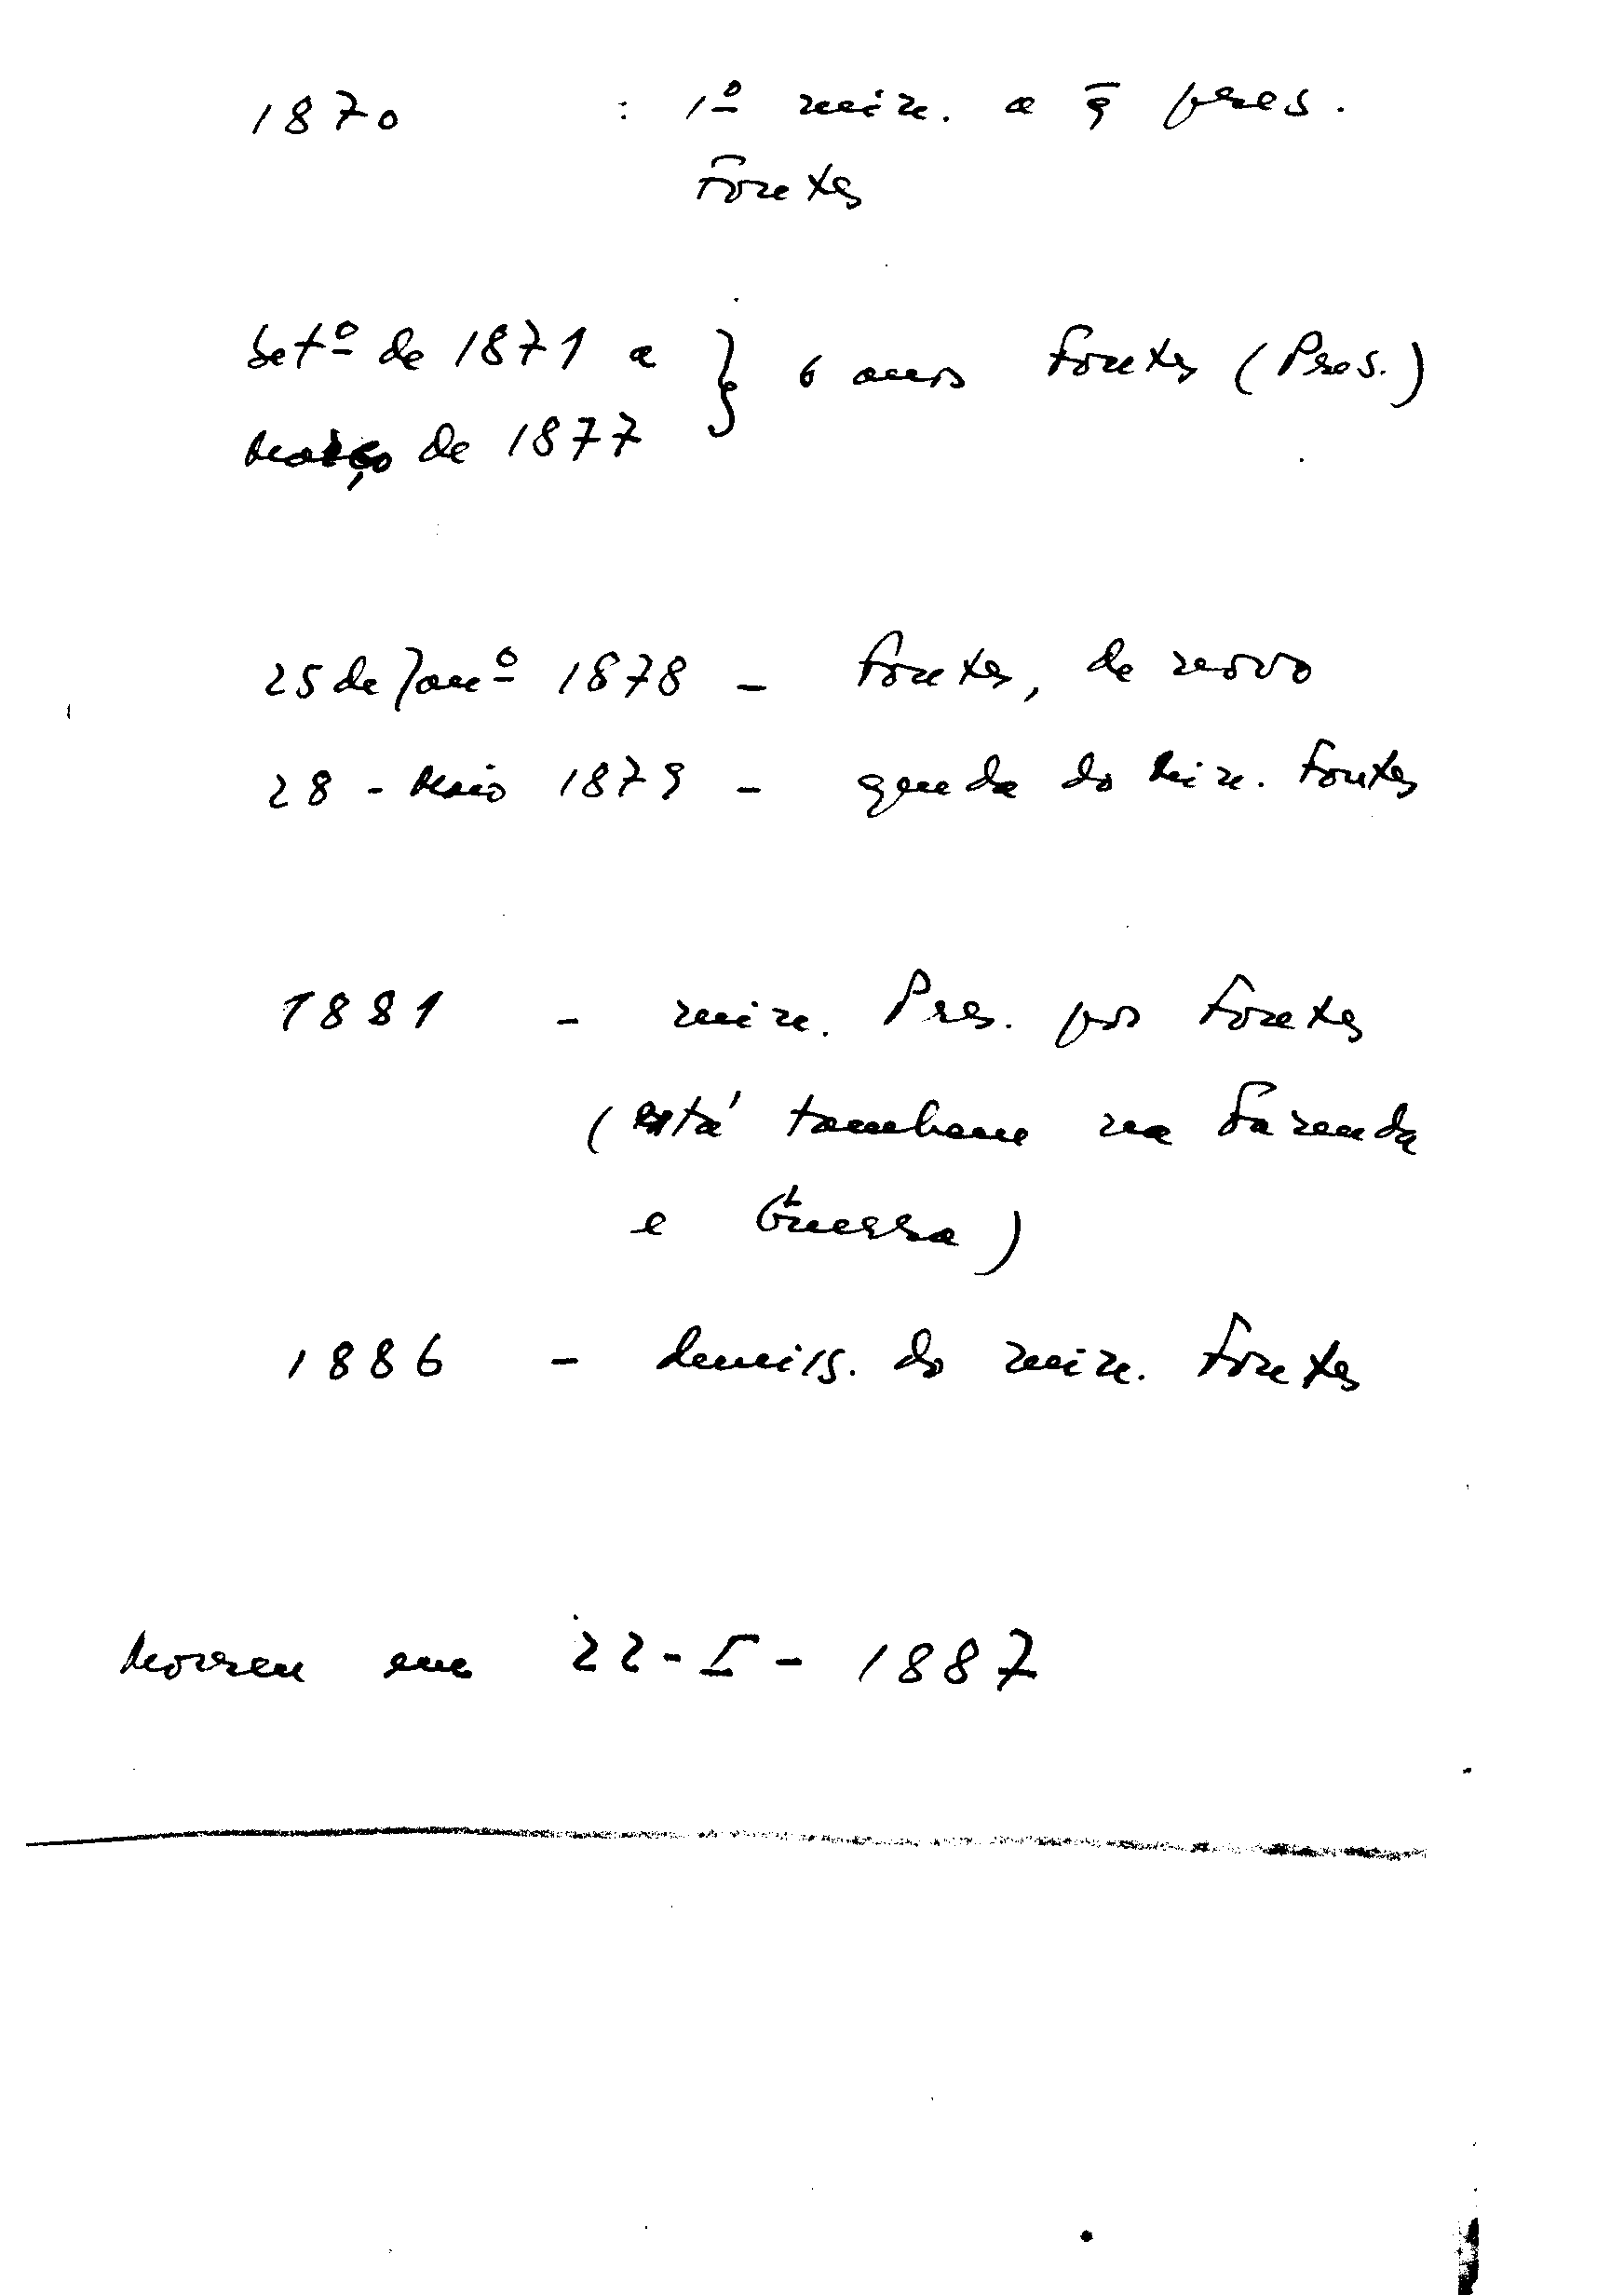 1870 : 1º min. a q̄ pres.
Fontes
Setº de 1871 a } 6 anos Fontes (Pres.)
Março de 1877
25 de Janº 1878 - Fontes, de novo
28 - Maio 1879 - queda do Min. Fontes
1881 - min. Pres. por Fontes
(está tambem na Fazenda
e Guerra)
1886 - demiss. do min. Fontes
Morreu em 22-I-1887